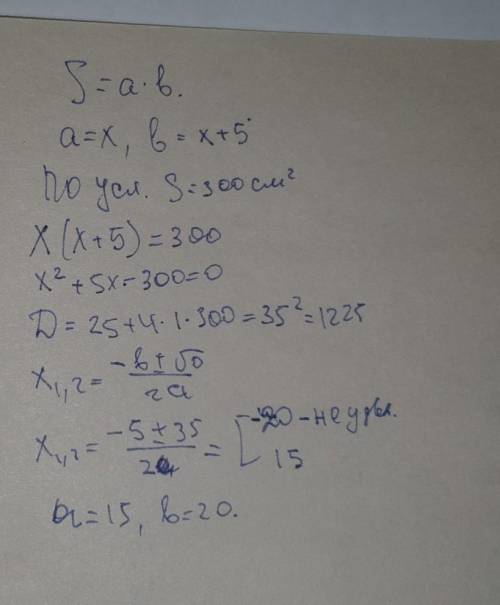 S = a · в.
a = x, в = x + 5
По усл. S = 300 см²
x (x + 5) = 300
x² + 5x - 300 = 0
D = 25 + 4 · 1 · 300 = 35² = 1225
x₁,₂ = (-в ± √D) / 2a
x₁,₂ = (-5 ± 35) / 2 = [ -20 - не удвл.
15
a = 15, в = 20.